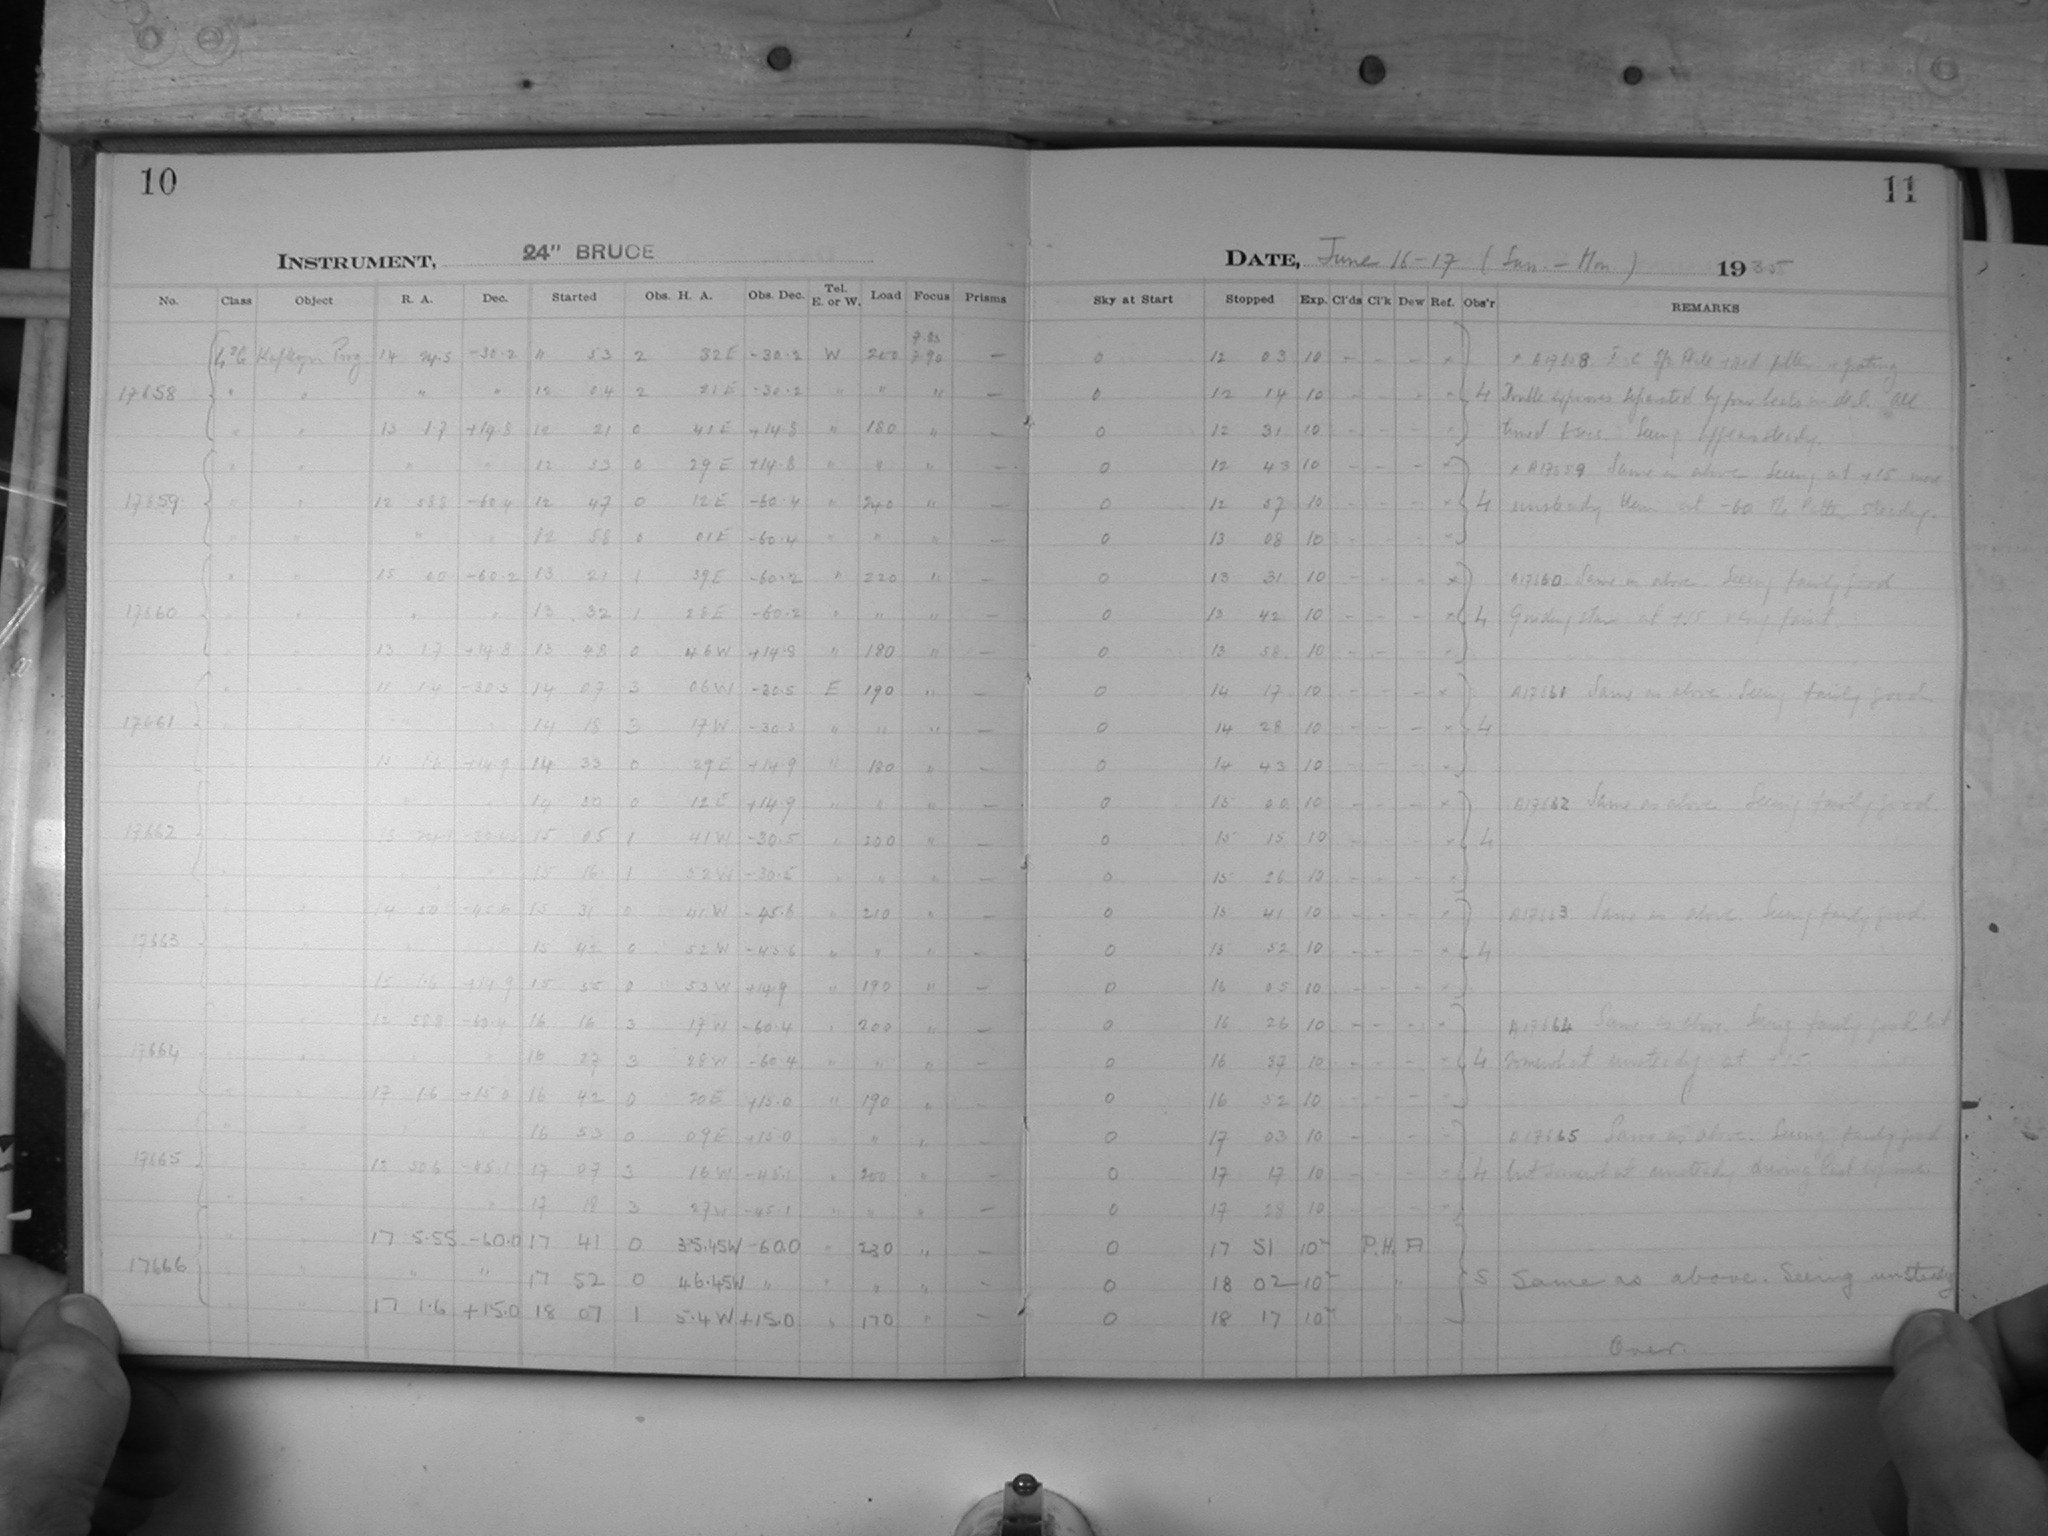 10
11
INSTRUMENT, 24" BRUCE
DATE, June 16-17 (Sun. - Mon.) 1935
No. Class Object R. A. Dec. Started Obs. H. A. Obs. Dec. Tel. E. or W. Load Focus Prisms Sky at Start Stopped Exp. Cl'ds Cl'k Dew Ref. Obs'r REMARKS
7.85
14 24.5 -30.2 " 53 2 32E -30.2 W 200 7.90 — 0 12 03 10 - - - A17658
17658 " " " " 12 04 2 21E -30.2 " " " — 0 12 14 10 - - - 4 Double exposures separated by four beats in decl. All
" " 13 1.7 +14.8 12 21 0 41E +14.8 " 180 " — 0 12 31 10 - - - Seeing appears steady.
" " " " 12 33 0 29E +14.8 " " " — 0 12 43 10 - - - A17659 Same as above. Seeing at +15 more
17659 " " 12 58.8 -60.4 12 47 0 12E -60.4 " 240 " — 0 12 57 10 - - - 4 unsteady than at -60 the latter steady.
" " " " 12 58 0 01E -60.4 " " " — 0 13 08 10 - - -
" " 15 00 -60.2 13 21 1 39E -60.2 " 220 " — 0 13 31 10 - - - A17660 Same as above. Seeing fairly good
17660 " " " " 13 32 1 28E -60.2 " " " — 0 13 42 10 - - - 4 Guiding star at +15 very faint.
" " 13 1.7 +14.8 13 48 0 46W +14.8 " 180 " — 0 13 58 10 - - -
" " 11 1.4 -30.5 14 07 3 06W -30.5 E 190 " — 0 14 17 10 - - - A17661 Same as above. Seeing fairly good.
17661 " " 14 18 3 17W -30.5 " " " — 0 14 28 10 - - - 4
15 1.6 +14.9 14 33 0 29E +14.9 " 180 " — 0 14 43 10 - - -
14 50 0 12E +14.9 " " " — 0 15 00 10 - - - A17662 Same as above. Seeing fairly good.
17662 15 05 1 41W -30.5 " 200 " — 0 15 15 10 - - - 4
15 16 1 52W -30.5 " " " — 0 15 26 10 - - -
14 50 -45.6 15 31 0 41W -45.6 " 210 " — 0 15 41 10 - - - A17663 Same as above. Seeing fairly good.
17663 15 42 0 52W -45.6 " " " — 0 15 52 10 - - - 4
15 1.6 +14.9 15 55 0 53W +14.9 " 190 " — 0 16 05 10 - - -
12 58.8 -60.4 16 16 3 17W -60.4 " 200 " — 0 16 26 10 - - - A17664 Same as above. Seeing fairly good but
17664 27 3 28W -60.4 " " " — 0 16 37 10 - - - 4 somewhat unsteady at +15
17 1.6 +15.0 16 42 0 20E +15.0 " 190 " 0 16 52 10 - - -
16 53 0 09E +15.0 " " " 0 17 03 10 - - A17665 Same as above. Seeing fairly good
17665 13 50.6 -45.1 17 07 3 16W -45.1 " 200 " — 0 17 17 10 - - - 4 but somewhat unsteady during last exposure.
17 18 3 27W -45.1 " " " — 0 17 28 10 - - -
17 5.55 -60.0 17 41 0 35.45W -60.0 " 230 " — 0 17 51 10 P.H. A
17666 " " 17 52 0 46.45W " " " " — 0 18 02 10 " 5 Same as above. Seeing unsteady
17 1.6 +15.0 18 07 1 5.4W +15.0 " 170 " — 0 18 17 10 "
Over.